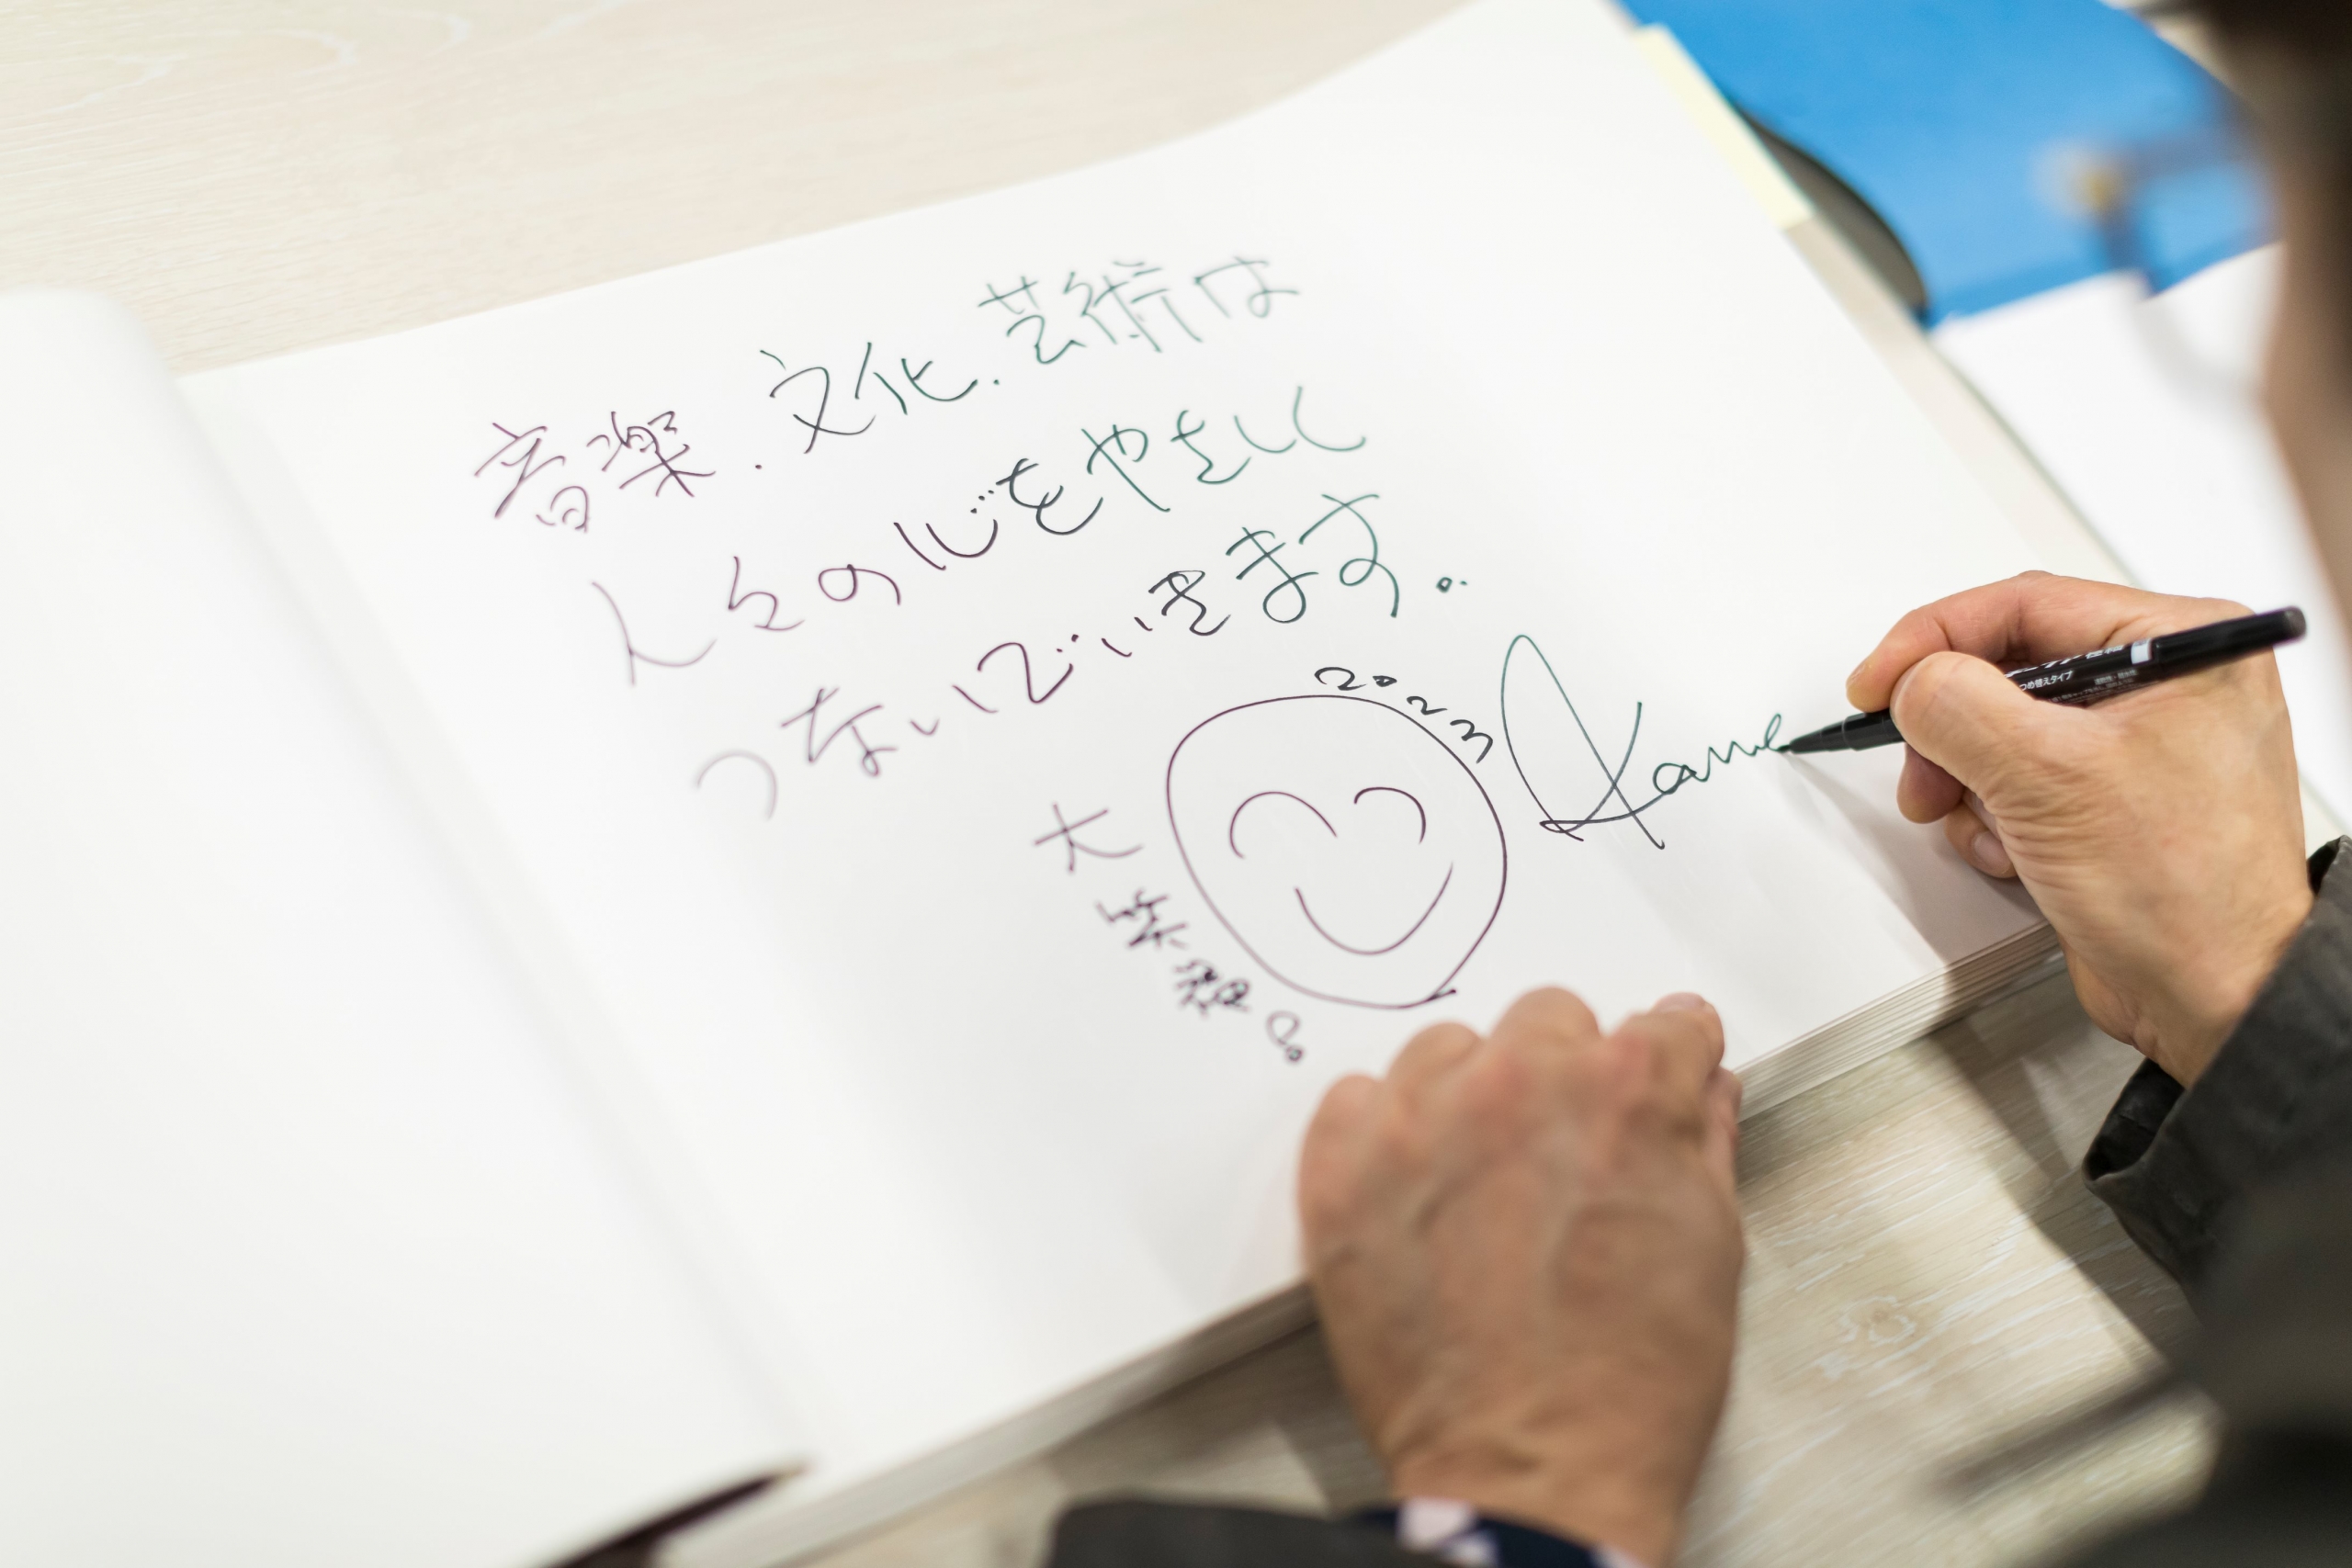 音楽.文化.芸術は
人々の心をやさしく
つないでいきます。
2023
Kame
大柴想。
つめ替えタイプ